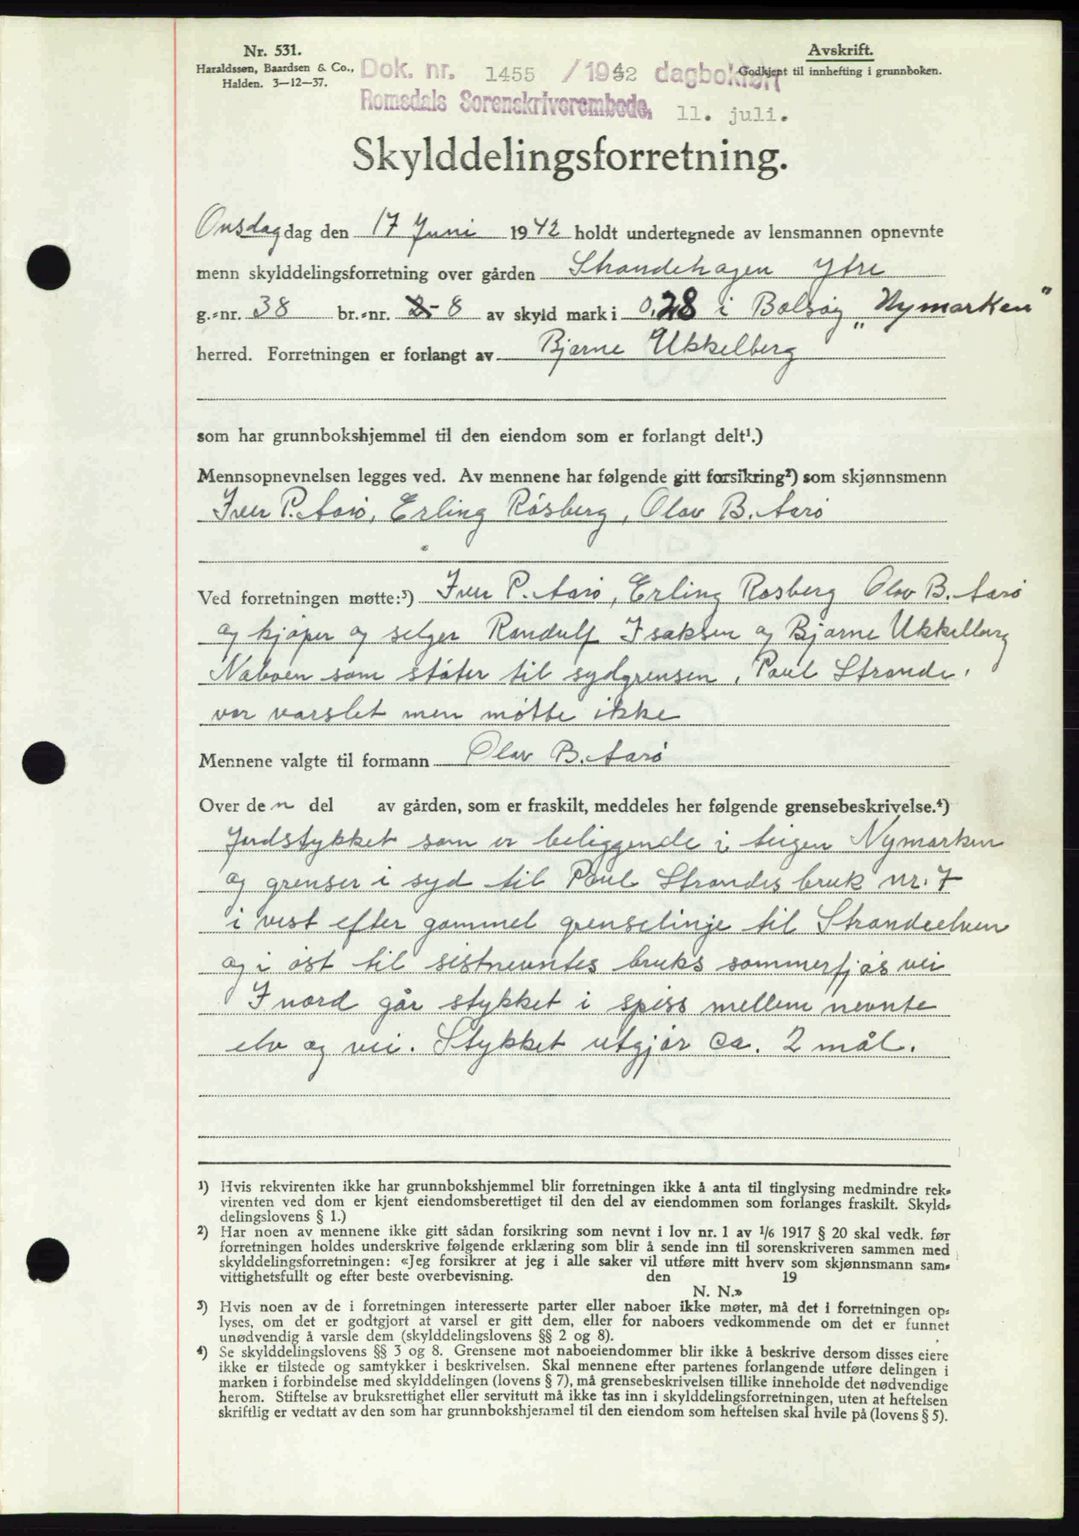 Nr. 531.
Haraldssen, Baardsen & Co.,
Halden. 3—12—37.
Avskrift.
Godkjent til innhefting i grunnboken.
Dok. nr. 1455 / 1942 dagbokført
Romsdals Sorenskriverembede, 11. juli.
Skylddelingsforretning.
Onsdag dag den 17 Juni 1942 holdt undertegnede av lensmannen opnevnte
menn skylddelingsforretning over gården Strandehagen ytre
g.-nr. 38 br.-nr. 8 av skyld mark i 0,28 i Bolsøy "Nymarken"
herred. Forretningen er forlangt av Bjarne Ukkelberg
som har grunnbokshjemmel til den eiendom som er forlangt delt¹.)
Mennsopnevnelsen legges ved. Av mennene har følgende gitt forsikring²) som skjønnsmenn
Iver P. Aarø, Erling Røsberg, Olav B. Aarø
Ved forretningen møtte:³) Iver P. Aarø, Erling Røsberg Olav B. Aarø
og kjøper og selger Randulf Isaksen og Bjarne Ukkelberg
Naboen som støter til sydgrensen, Paul Strande,
var varslet men møtte ikke
Mennene valgte til formann Olav B. Aarø
Over de n del av gården, som er fraskilt, meddeles her følgende grensebeskrivelse.⁴)
Jordstykket som er beliggende i teigen Nymarken
og grenser i syd til Paul Strandes bruk nr. 7
i vest efter gammel grenselinje til Strandeelven
og i øst til sistnevntes bruks sommerfjøs vei
I nord går stykket i spiss mellem nevnte
elv og vei. Stykket utgjør ca. 2 mål.
¹) Hvis rekvirenten ikke har grunnbokshjemmel blir forretningen ikke å anta til tinglysing medmindre rek-
virenten ved dom er kjent eiendomsberettiget til den del av eiendommen som forlanges fraskilt. Skyld-
delingslovens § 1.)
²) Har noen av mennene ikke gitt sådan forsikring som nevnt i lov nr. 1 av 1/6 1917 § 20 skal vedk. før
forretningen holdes underskrive følgende erklæring som blir å sende inn til sorenskriveren sammen med
skylddelingsforretningen: «Jeg forsikrer at jeg i alle saker vil utføre mitt hverv som skjønnsmann sam-
vittighetsfullt og efter beste overbevisning. den 19
N. N.»
³) Hvis noen av de i forretningen interesserte parter eller naboer ikke møter, må det i forretningen op-
lyses, om det er godtgjort at varsel er gitt dem, eller for naboers vedkommende om det er funnet
unødvendig å varsle dem (skylddelingslovens §§ 2 og 8).
⁴) Se skylddelingslovens §§ 3 og 8. Grensene mot naboeiendommer blir ikke å beskrive dersom disses eiere
ikke er tilstede og samtykker i beskrivelsen. Skal mennene efter partenes forlangende utføre delingen i
marken i forbindelse med skylddelingen (lovens § 7), må grensebeskrivelsen tillike inneholde det nødvendige
herom. Stiftelse av bruksrettighet eller servitutt må ikke tas inn i skylddelingsforretningen, uten at heftelsen
skriftlig er vedtatt av den som har grunnbokshjemmel til den eiendom som heftelsen skal hvile på (lovens § 5).